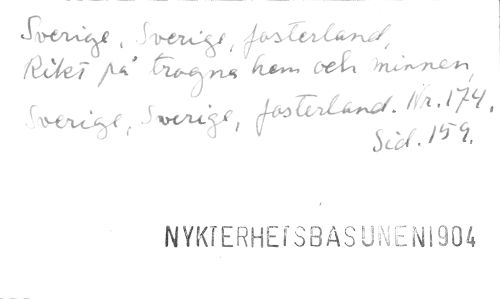 Sverige, Sverige, fosterland,
Rikt på trogna hem och minnen,
Sverige, Sverige, fosterland. Nr. 174,
Sid. 159.
NYKTERHETSBASUNEN 1904